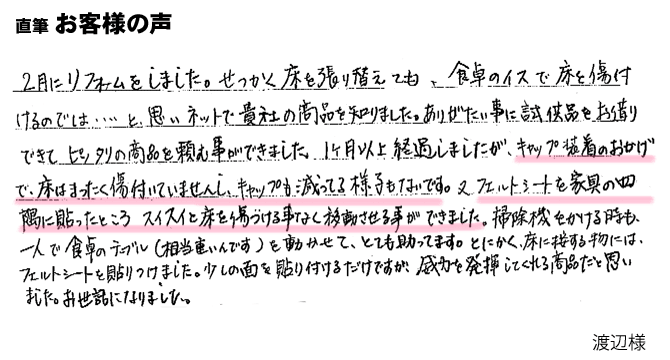 直筆 お客様の声
2月にリフォームをしました。せっかく床を張り替えても、食卓のイスで床を傷付
けるのでは……と、思いネットで貴社の商品を知りました。ありがたい事に試供品をお借り
できてピッタリの商品を頼む事ができました。1ヶ月以上経過しましたが、キャップ装着のおかげ
で、床はまったく傷付いていませんし、キャップも減ってる様子もないです。又フェルトシートを家具の四
隅に貼ったところスイスイと床を傷づける事なく移動させる事ができました。掃除機をかける時も、
一人で食卓のテーブル(相当重いんです)を動かせて、とても助ってます。とにかく、床に接する物には、
フェルトシートを貼りつけました。少しの面を貼り付けるだけですが、威力を発揮してくれる商品だと思い
ました。お世話になりました。
渡辺様